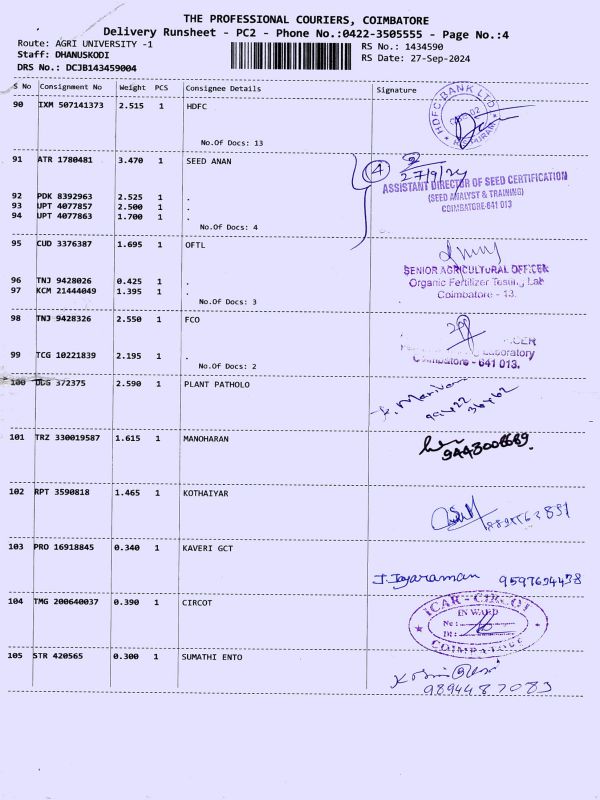 THE PROFESSIONAL COURIERS, COIMBATORE
Delivery Runsheet - PC2 - Phone No.:0422-3505555 - Page No.:4
Route: AGRI UNIVERSITY -1
RS No.: 1434590
Staff: DHANUSKODI
RS Date: 27-Sep-2024
DRS No.: DCJB143459004
S No Consignment No Weight PCS Consignee Details Signature
90 IXM 507141373 2.515 1 HDFC
HDFC BANK LTD
No.Of Docs: 13
91 ATR 1780481 3.470 1 SEED ANAN
4
27/9/24
ASSISTANT DIRECTOR OF SEED CERTIFICATION
(SEED ANALYST & TRAINING)
COIMBATORE-641 013
92 PDK 8392963 2.525 1 .
93 UPT 4077857 2.500 1 .
94 UPT 4077863 1.700 1 .
No.Of Docs: 4
95 CUD 3376387 1.695 1 OFTL
SENIOR AGRICULTURAL OFFICER
Organic Fertilizer Testing Lab
Coimbatore - 13.
96 TNJ 9428026 0.425 1 .
97 KCM 21444049 1.395 1 .
No.Of Docs: 3
98 TNJ 9428326 2.550 1 FCO
Laboratory
Coimbatore - 641 013.
99 TCG 10221839 2.195 1 .
No.Of Docs: 2
100 DLG 372375 2.590 1 PLANT PATHOLO
101 TRZ 330019587 1.615 1 MANOHARAN
102 RPT 3590818 1.465 1 KOTHAIYAR
103 PRO 16918845 0.340 1 KAVERI GCT
J. Jayaraman
104 TMG 200640037 0.390 1 CIRCOT
ICAR-CIRCOT
INWARD
No :
Dt :
COIMBATORE
105 STR 420565 0.300 1 SUMATHI ENTO
9894487083